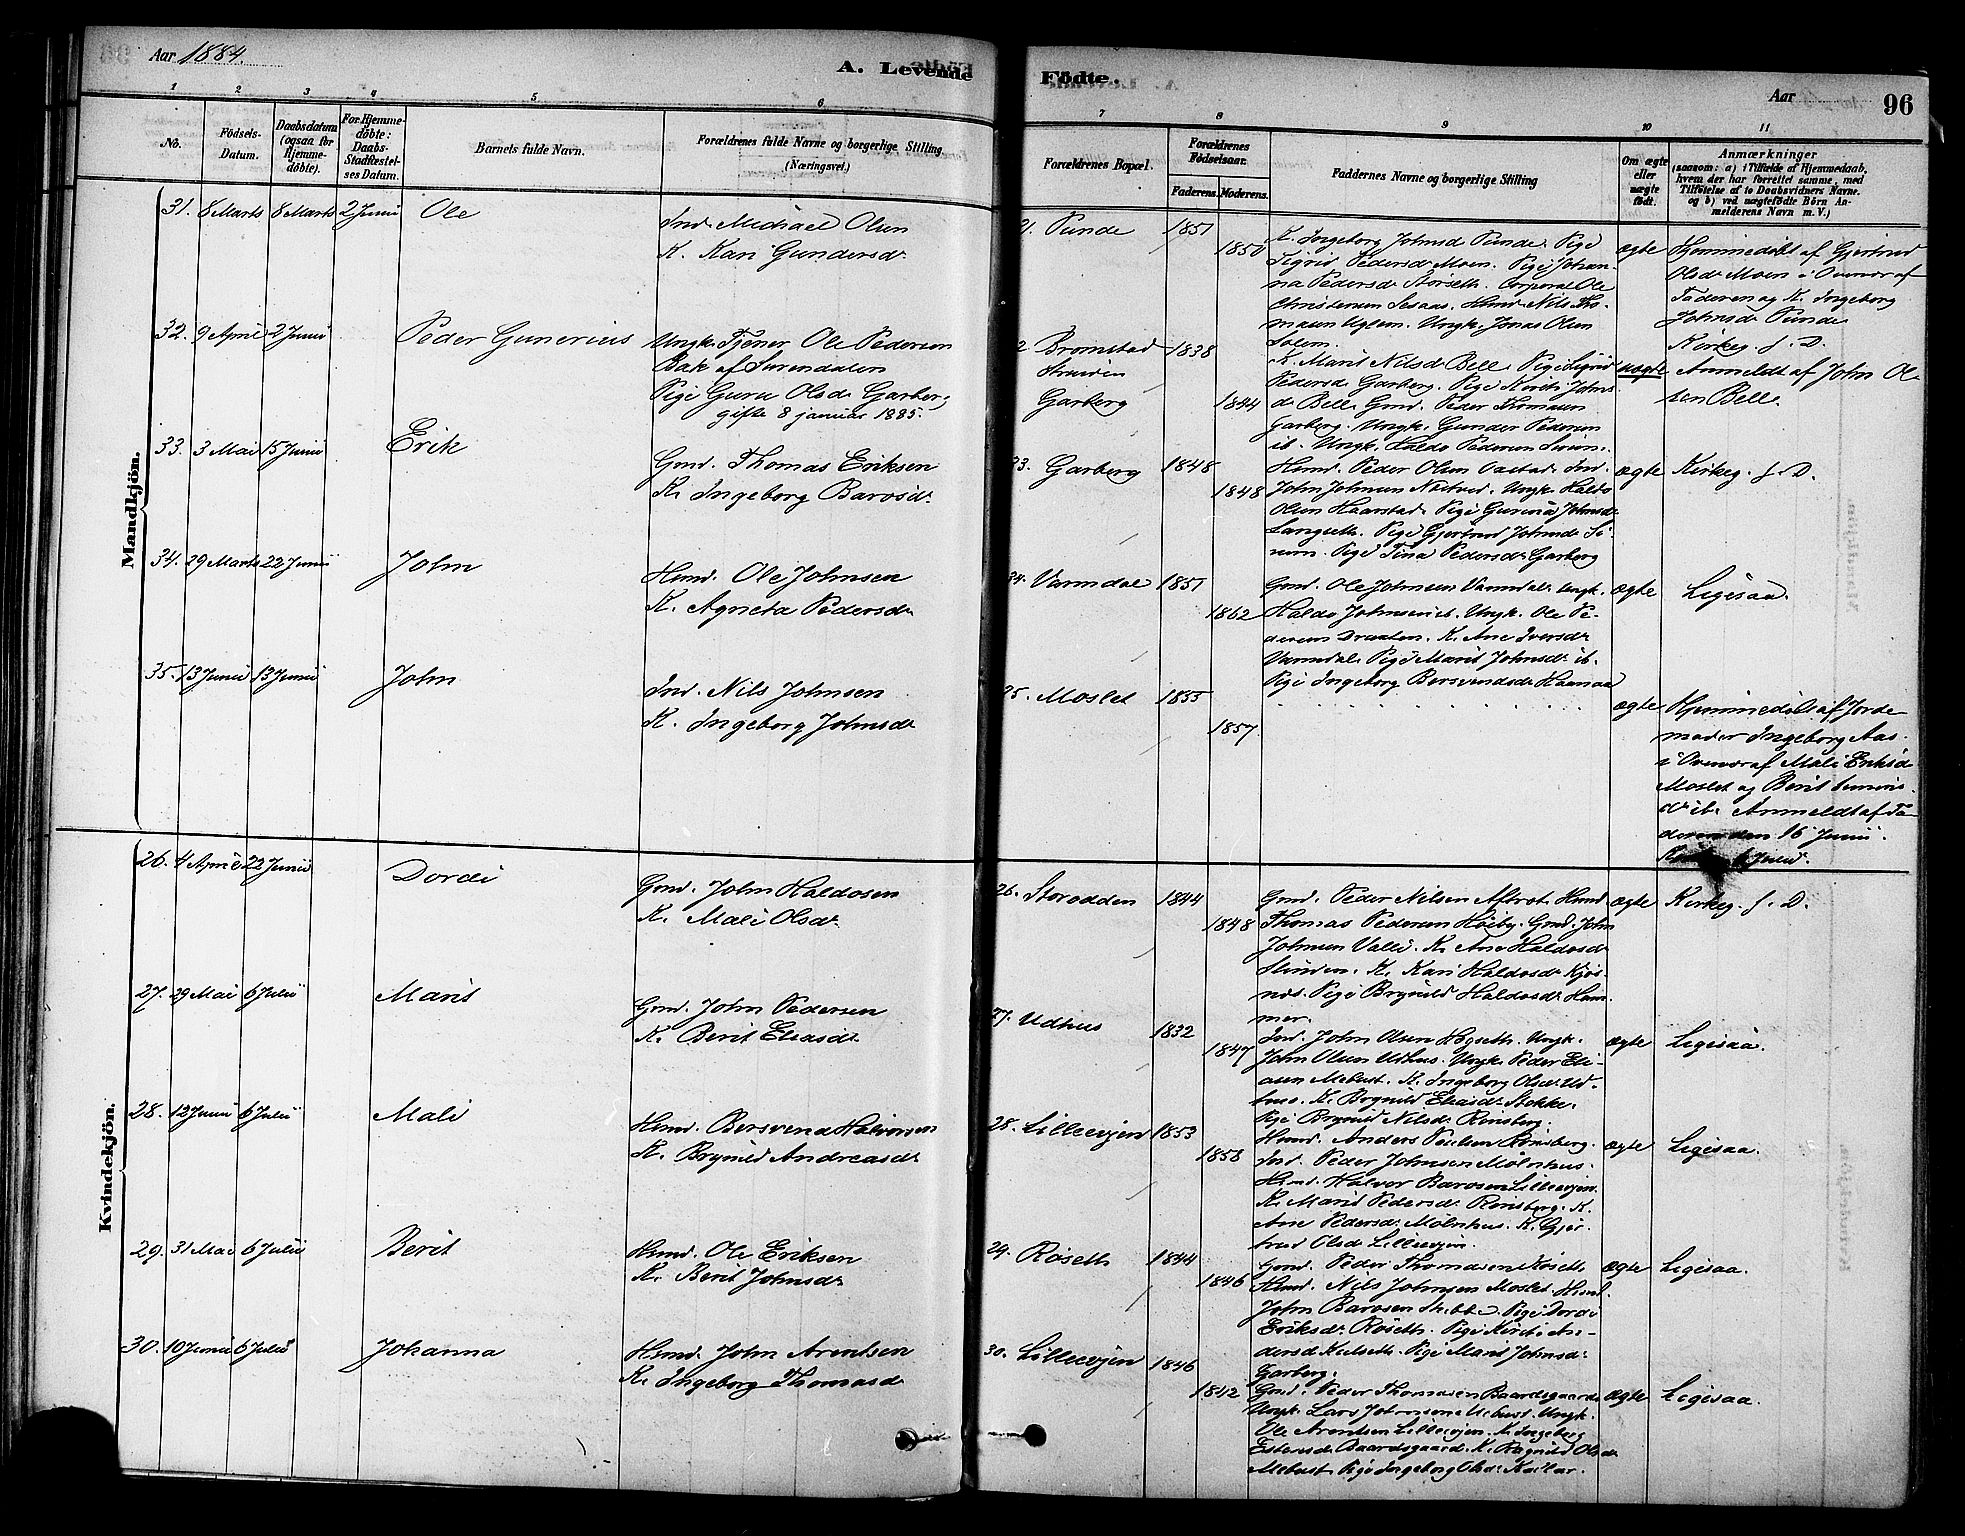 Aar 1884.
A. Levende
Födte.
Aar
96
1
2
3
4
5
6
7
8
9
10
11
No.
Födsels-
Datum.
Daabsdatum
(ogsaa for
Hjemme-
döbte).
For Hjemme-
döbte:
Daabs-
Stadfæstel-
ses Datum.
Barnets fulde Navn.
Forældrenes fulde Navne og borgerlige Stilling
(Næringsvei.)
Forældrenes Bopæl.
Forældrenes
Födselsaar.
Faderens.
Moderens.
Faddernes Navne og borgerlige Stilling
Om ægte
eller
uægte
födt.
Anmærkninger
(saasom: a) i Tilfælde af Hjemmedaab,
hvem der har forrettet samme, med
Tilföielse af to Daabsvidners Navne.
og b) ved uægtefödte Börn An-
melderens Navn m. V.)
Mandkjön.
31. 8 Marts 8 Marts 2 Junii Ole
Ind. Michael Olsen
K. Kari Gundersdr
Punde 1851
1850
K. Ingeborg Johnsd Punde. Pige
Sigrid Pedersdr Moen. Pige Johan-
na Pedersdr Storseth. Corporal Ole
Christensen Sesaas. Hmd Nils Tho-
masen Uglem. Ungk. Jonas Olsen
Solem.
ægte
Hjemmedöbt af Gjertrud
Olsdr Moen i Overvær af
Faderen og K. Ingeborg
Johnsdr Punde
Kirkeg. f. D.
32. 9 April 2 Junii Peder Gunerius
Ungk. Tjener Ole Pedersen
Bak af Surendalen
Pige Guru Olsdr Garberg
gifte 8 januar 1885.
Bromstad
Stranden
Garberg
1838
1844
K. Marit Nilsd Bell. Pige Sigrid
Pedersdr Garberg. Pige Kirsti Johns
dr Bell. Gmd. Peder Thomasen
Garberg. Ungk. Gunder Pedersen
ib. Ungk. Haldo Pedersen
uægte
Anmeldt af John Ol
sen Bell.
33. 3 Mai 15 Junii Erik
Gmd. Thomas Eriksen
K. Ingeborg Barosdr
33. Garberg 1848
1848
Hmd. Peder Olsen Ind.
John Johnsen Ungk Haldo
Olsen Haarstad. Pige Gurina Johnsdr
Langseth. Pige Gjertrud Johnsdr Si-
rum. Pige Tina Pedersdr Garberg
ægte
Kirkeg. f. D.
34. 29 Marts 22 Junii John
Hmd. Ole Johnsen
K. Agneta Pedersdr
34. Varmdal 1851
1862
Gmd. Ole Johnsen Varmdal. Ungk.
Haldo Johnsen ib. Ungk. Ole Pe-
dersen Draaten. K. Ane Iversdr
Varmdal. Pige Marit Johnsdr ib.
Pige Ingeborg Bersvendsdr
ægte
Ligesaa.
35. 13 Junii 13 Junii John
Ind. Nils Johnsen
K. Ingeborg Johnsdr
35. Moslet 1855
1857.
ægte
Hjemmedöbt af Jorde
moder Ingeborg Aas.
i Overvær af Mali Eriksdr
Moslet og Berit
dr ib. Anmeldt af Fa
deren den 16 Junii.
6 Julii.
Kvindekjön.
26. 4 April 22 Junii Dordi
Gmd. John Haldosen
K. Mali Olsdr
26. Storodden 1844
1848
Gmd. Peder Nilsen Aftret. Hmd
Thomas Pedersen Höiby. Gmd. John
Johnsen Valli. K. Ane Haldosdr
K. Kari Haldosdr Kjös-
nes. Pige Brynild Haldosdr Ham-
mer.
ægte
Kirkeg. f. D.
27. 29 Mai 6 Julii Marit
Gmd. John Pedersen
K. Berit Eliasdr
27. Udhus 1832
1847
Ind. John Olsen Högseth. Ungk.
John Olsen Udhus. Ungk Peder Eli-
asen Mebust. K. Ingeborg Olsdr Ud-
hus. K. Brynild Eliasdr Stokke.
Pige Brynild Nilsdr Rönsberg.
ægte
Ligesaa.
28. 12 Junii 6 Julii Mali
Hmd. Bersvend Halvorsen
K. Brynild Andreasdr
28. Lilleevjen 1853
1858
Hmd. Anders Rönsberg.
Ind. Peder Johnsen Mölnhus.
Hmd. Halvor Barosen Lilleevjen.
K. Marit Pedersdr Rönsberg. K.
Ane Pedersdr Mölnhus. K. Gjer-
trud Olsdr Lilleevjen.
ægte
Ligesaa.
29. 31 Mai 6 Julii Berit
Hmd. Ole Eriksen
K. Berit Johnsdr
29. Röseth 1844
1846
Gmd. Peder Thomasen Röseth
Hmd. Nils Johnsen Moslet. Hmd.
John Barosen Stubbe. Pige Dordi
Eriksdr Röseth. Pige Kirsti An-
dersdr Kulseth. Pige Marit Johnsdr
Garberg.
ægte
Ligesaa.
30. 10 Junii 6 Julii Johanna
Hmd. John Arentsen
K. Ingeborg Thomasd
30. Lilleevjen 1846
1842
Gmd. Peder Thomasen Baardsgaard
Ungk. Lars Johnsen Mebust. Ungk.
Ole Arentsen Lilleevjen. K. Ingeborg
Estensdr Baardsgaard. K. Ragnild Olsdr
Mebust. Pige Ingeborg Olsdr
ægte
Ligesaa.